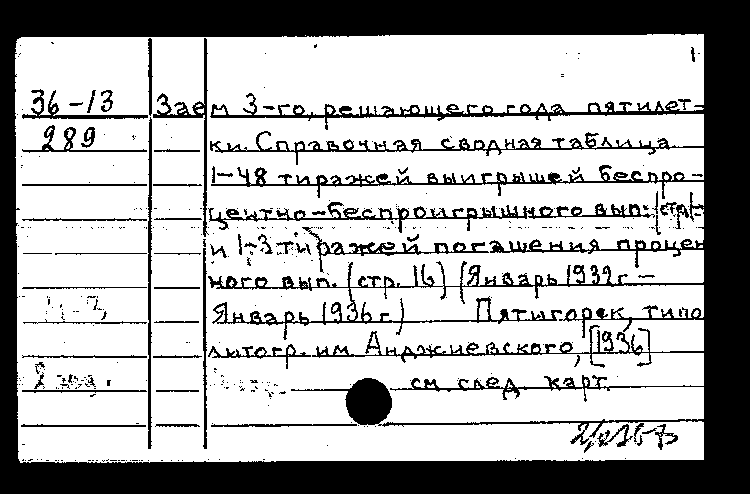 36-13 Заем 3-го, решающего года пятилет-
289 ки. Справочная сводная таблица
1-48 тиражей выигрышей беспро-
центно-беспроигрышного вып.
и 1-3 тиражей погашения процен
ного вып. (стр. 16) (Январь 1932г –
Январь 1936 г.) Пятигорск, типо
литогр. им Анджиевского, [1936]
см. след. карт.